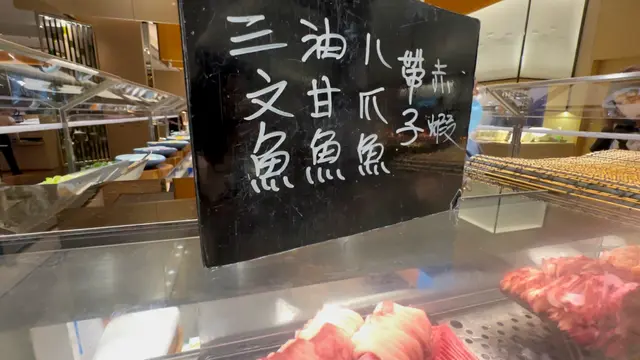 赤蝦
帶子
八爪魚
油甘魚
三文魚